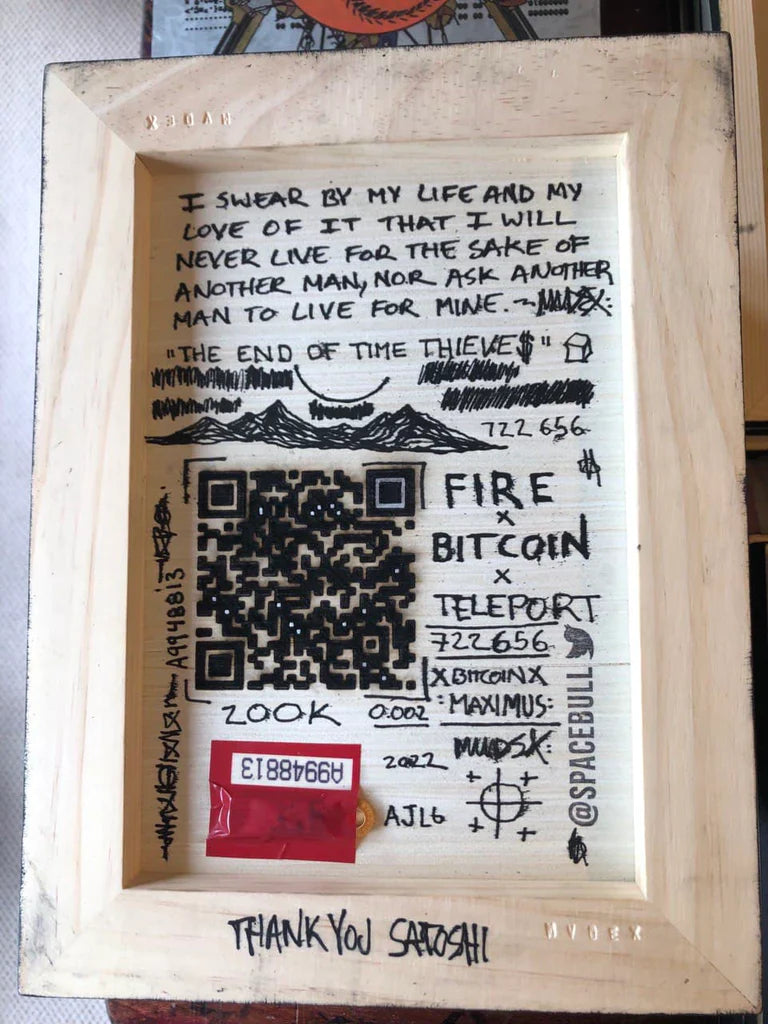 I SWEAR BY MY LIFE AND MY
LOVE OF IT THAT I WILL
NEVER LIVE FOR THE SAKE OF
ANOTHER MAN, NOR ASK ANOTHER
MAN TO LIVE FOR MINE. ~
"THE END OF TIME THIEVE$"
722 656
FIRE
X
BITCOIN
X
TELEPORT
722656
XBITCOINX
:MAXIMUS:
A9948813
200K 0.002
A9948813
2022
AJL6
@SPACEBULL
THANK YOU SATOSHI